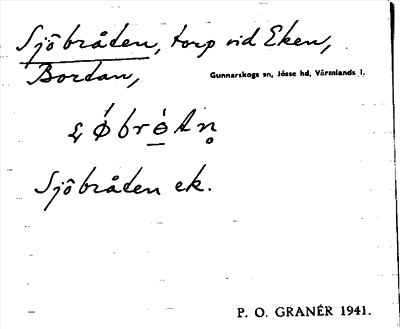 Sjöbråten, torp vid Eken,
Bordan,
Gunnarskogs sn, Jösse hd, Värmlands l.
Sjöbråten ek.
P. O. GRANÉR 1941.